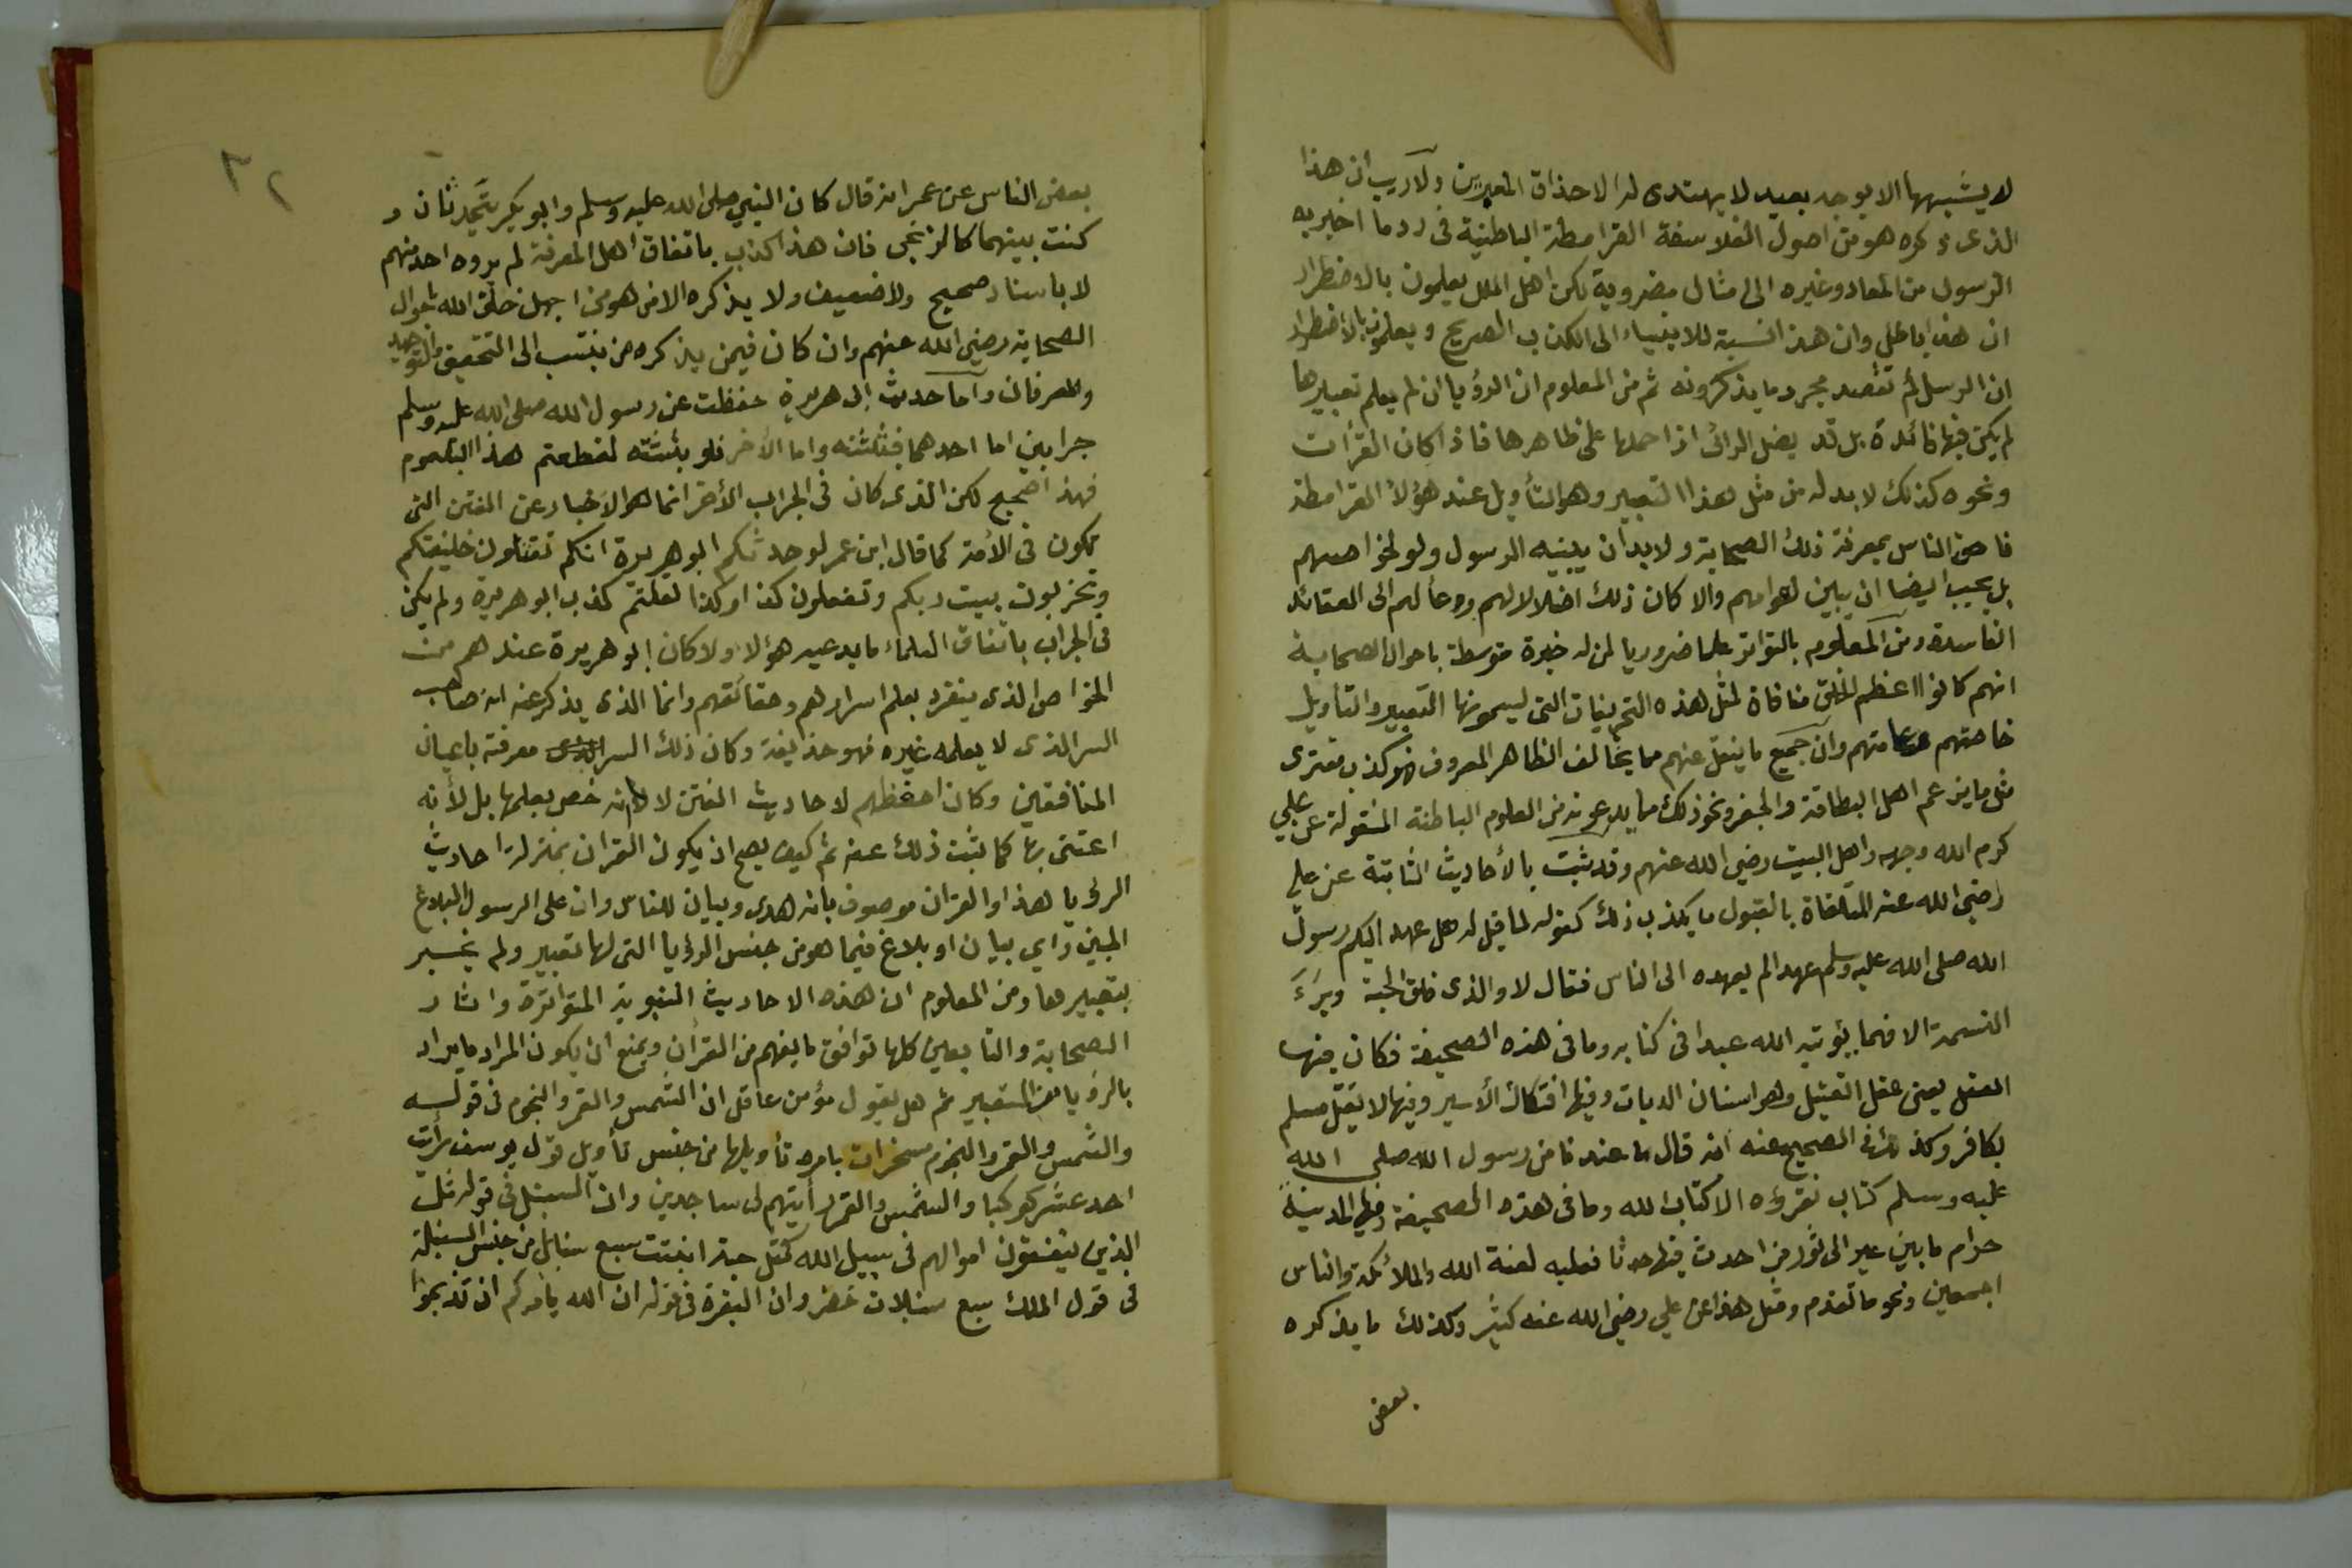 لا يشبهها الا بوجه بعيد لا يهتدى له الا حذاق المعبرين ولا ريب ان هذا
الذى ذكره هو من اصول الفلاسفة القرامطة الباطنية فى رد ما اخبر به
الرسول من المعاد وغيره الى امثال مضروبة لكن اهل الملل يعلمون بالاضطرار
ان هذا باطل وان هذا نسبة للانبياء الى الكذب الصريح ويعلمون بالأضطرار
ان الرسل لم تقصد مجرد ما يذكرونه ثم من المعلوم ان الرؤيا ان لم يعلم تعبيرها
لم يكن فيها فائدة بل قد يضل الرائى اذا حملها على ظاهرها فاذا كان القرأن
ونحوه كذلك لا بد له من مثل هذا التعبير وهو التأويل عند هؤلاء القرامطة
فاحق الناس بمعرفة ذلك الصحابة ولا بد أن يبينه الرسول ولو لخواصهم
بل يجب ايضا ان يبين لعوامهم والا كان ذلك اضلالا لهم ودعاً لهم الى العقائد
الفاسدة ومن المعلوم بالتواتر علما ضروريا لمن له خبرة متوسطة باحوال الصحابة
انهم كانوا اعظم الخلق منافاة لمثل هذه التحريفات التى ليسمونها التعبير والتاويل
خاصتهم وعامتهم وان جميع ما ينقل عنهم مما يخالف الظاهر المعروف فهو كذب مفترى
مثل ما يزعم اهل البطاقة والجفر ونحو ذلك مما يدعونه من العلوم الباطنة المنقولة عن علي
كرم الله وجهه واهل البيت رضي الله عنهم وقد ثبت بالأحاديث الثابتة عن علي
رضي الله عنه المتلقاة بالقبول ما يكذب ذلك كقوله لما قيل له هل عهد اليكم رسول
الله صلى الله عليه وسلم عهدا لم يعهده الى الناس فقال لا والذى فلق الحبة وبرَءَ
النسمة الا فهما يؤتيه الله عبدا فى كتابه وما فى هذه الصحيفة فكان فيها
العقل يعنى عقل القتيل وهو اسنان الديات وفيها افتكاك الأسير وفيها لا يقتل مسلم
بكافر وكذلك فى الصحيح عنه انه قال ما عندنا من رسول الله صلى الله
عليه وسلم كتاب نقرؤه الا كتاب الله وما فى هذه الصحيفة وفيها المدينة
حرام ما بين عير الى ثور من احدث فيها حدثا فعليه لعنة الله والملائكة والناس
اجمعين ونحو ما تقدم ومثل هذا عن علي رضي الله عنه كثير وكذلك ما يذكره
بعض
٣٢
بعض الناس عن عمر انه قال كان النبي صلى الله عليه وسلم وابو بكر يتحدثان و
كنت بينهما كالزنجى فان هذا كذب باتفاق اهل المعرفة لم يروه احد منهم
لا باسناد صحيح ولا ضعيف ولا يذكره الا من هو من اجهل خلق الله باحوال
الصحابة رضي الله عنهم وان كان فيمن يذكره من ينتسب الى التحقيق والتوحيد
والعرفان وأما حديث ابى هريرة حفظت عن رسول الله صلى الله عليه وسلم
جرابين اما احدهما فبثثته واما الأخر فلو بثثته لقطعتم هذا البلعوم
فهذا صحيح لكن الذى كان فى الجراب الأخر انما هو الاخبار عن الفتن التى
تكون فى الأمة كما قال ابن عمر لو حدثكم ابو هريرة انكم تقتلون خليفتكم
وتخربون بيت ربكم وتفعلون كذا وكذا لقلتم كذب ابو هريرة ولم يكن
فى الجراب باتفاق العلماء ما يدعيه هؤلاء ولا كان ابو هريرة عندهم من
الخواص الذى ينفرد بعلم اسرارهم وحقائقهم وانما الذى يذكر عنه انه صاحب
السر الذى لا يعلمه غيره فهو حذيفة وكان ذلك السر معرفة باعيان
المنافقين وكان احفظهم لاحاديث الفتن لا لأنه خص بعلمها بل لأنه
اعتنى بها كما ثبت ذلك عنه ثم كيف يصح ان يكون القران بمنزلة احاديث
الرؤيا هذا والقران موصوف بأنه هدى وبيان للناس وان على الرسول البلاغ
المبين واي بيان او بلاغ فيما هو من جنس الرؤيا التى لها تعبير ولم يخبر
بتعبيرها ومن المعلوم ان هذه الاحاديث النبوية المتواترة واثار
الصحابة والتابعين كلها توافق ما يفهم من القرأن ويمنع ان يكون المراد ما يراد
بالرؤيا من التعبير ثم هل يقول مؤمن عاقل ان الشمس والقمر والنجوم فى قوله
والشمس والقمر والنجوم مسخرات بامره تأويلها من جنس تأويل قول يوسف رأيت
احد عشر كوكبا والشمس والقمر رأيتهم لى ساجدين وان السنبل فى قوله مثل
الذين ينفقون اموالهم فى سبيل الله كمثل حبة انبتت سبع سنابل من جنس السنبلة
فى قول الملك سبع سنبلات خضر وان البقرة فى قوله ان الله يأمركم ان تذبحوا